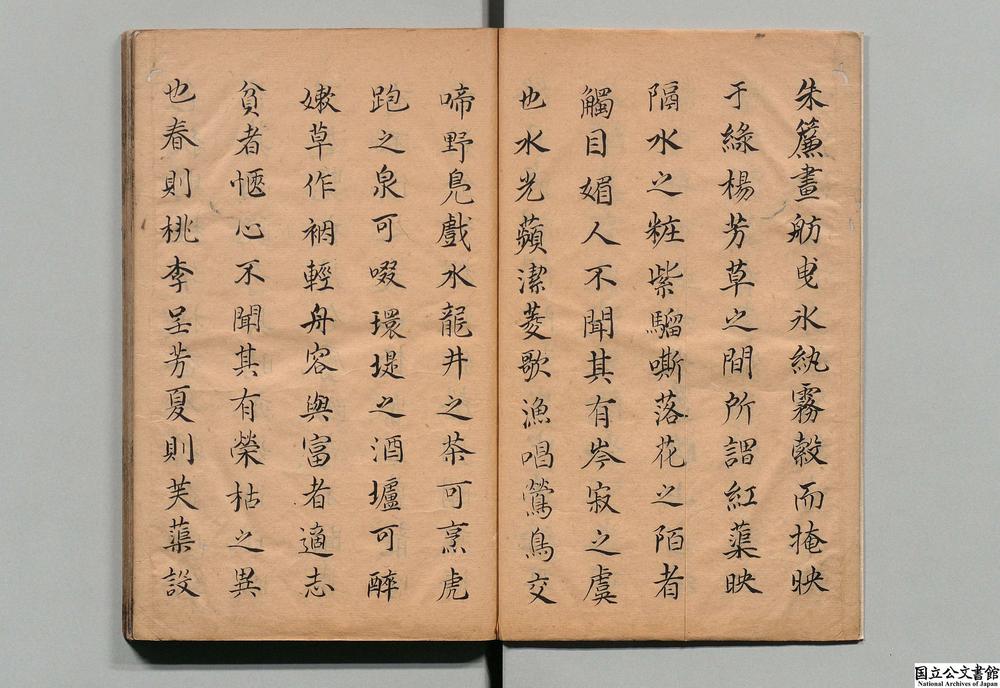 朱簾畫舫曳氷紈霧縠而掩映
于綠楊芳草之間所謂紅蕖映
隔水之粧紫騮嘶落花之陌者
觸目媚人不聞其有岑寂之虞
也水光蘋潔菱歌漁唱鶯鳥交
啼野鳧戲水龍井之茶可烹虎
跑之泉可啜環堤之酒壚可醉
嫰草作裀輕舟容與富者適志
貧者愜心不聞其有榮枯之異
也春則桃李呈芳夏則芙蕖設
国立公文書館
National Archives of Japan